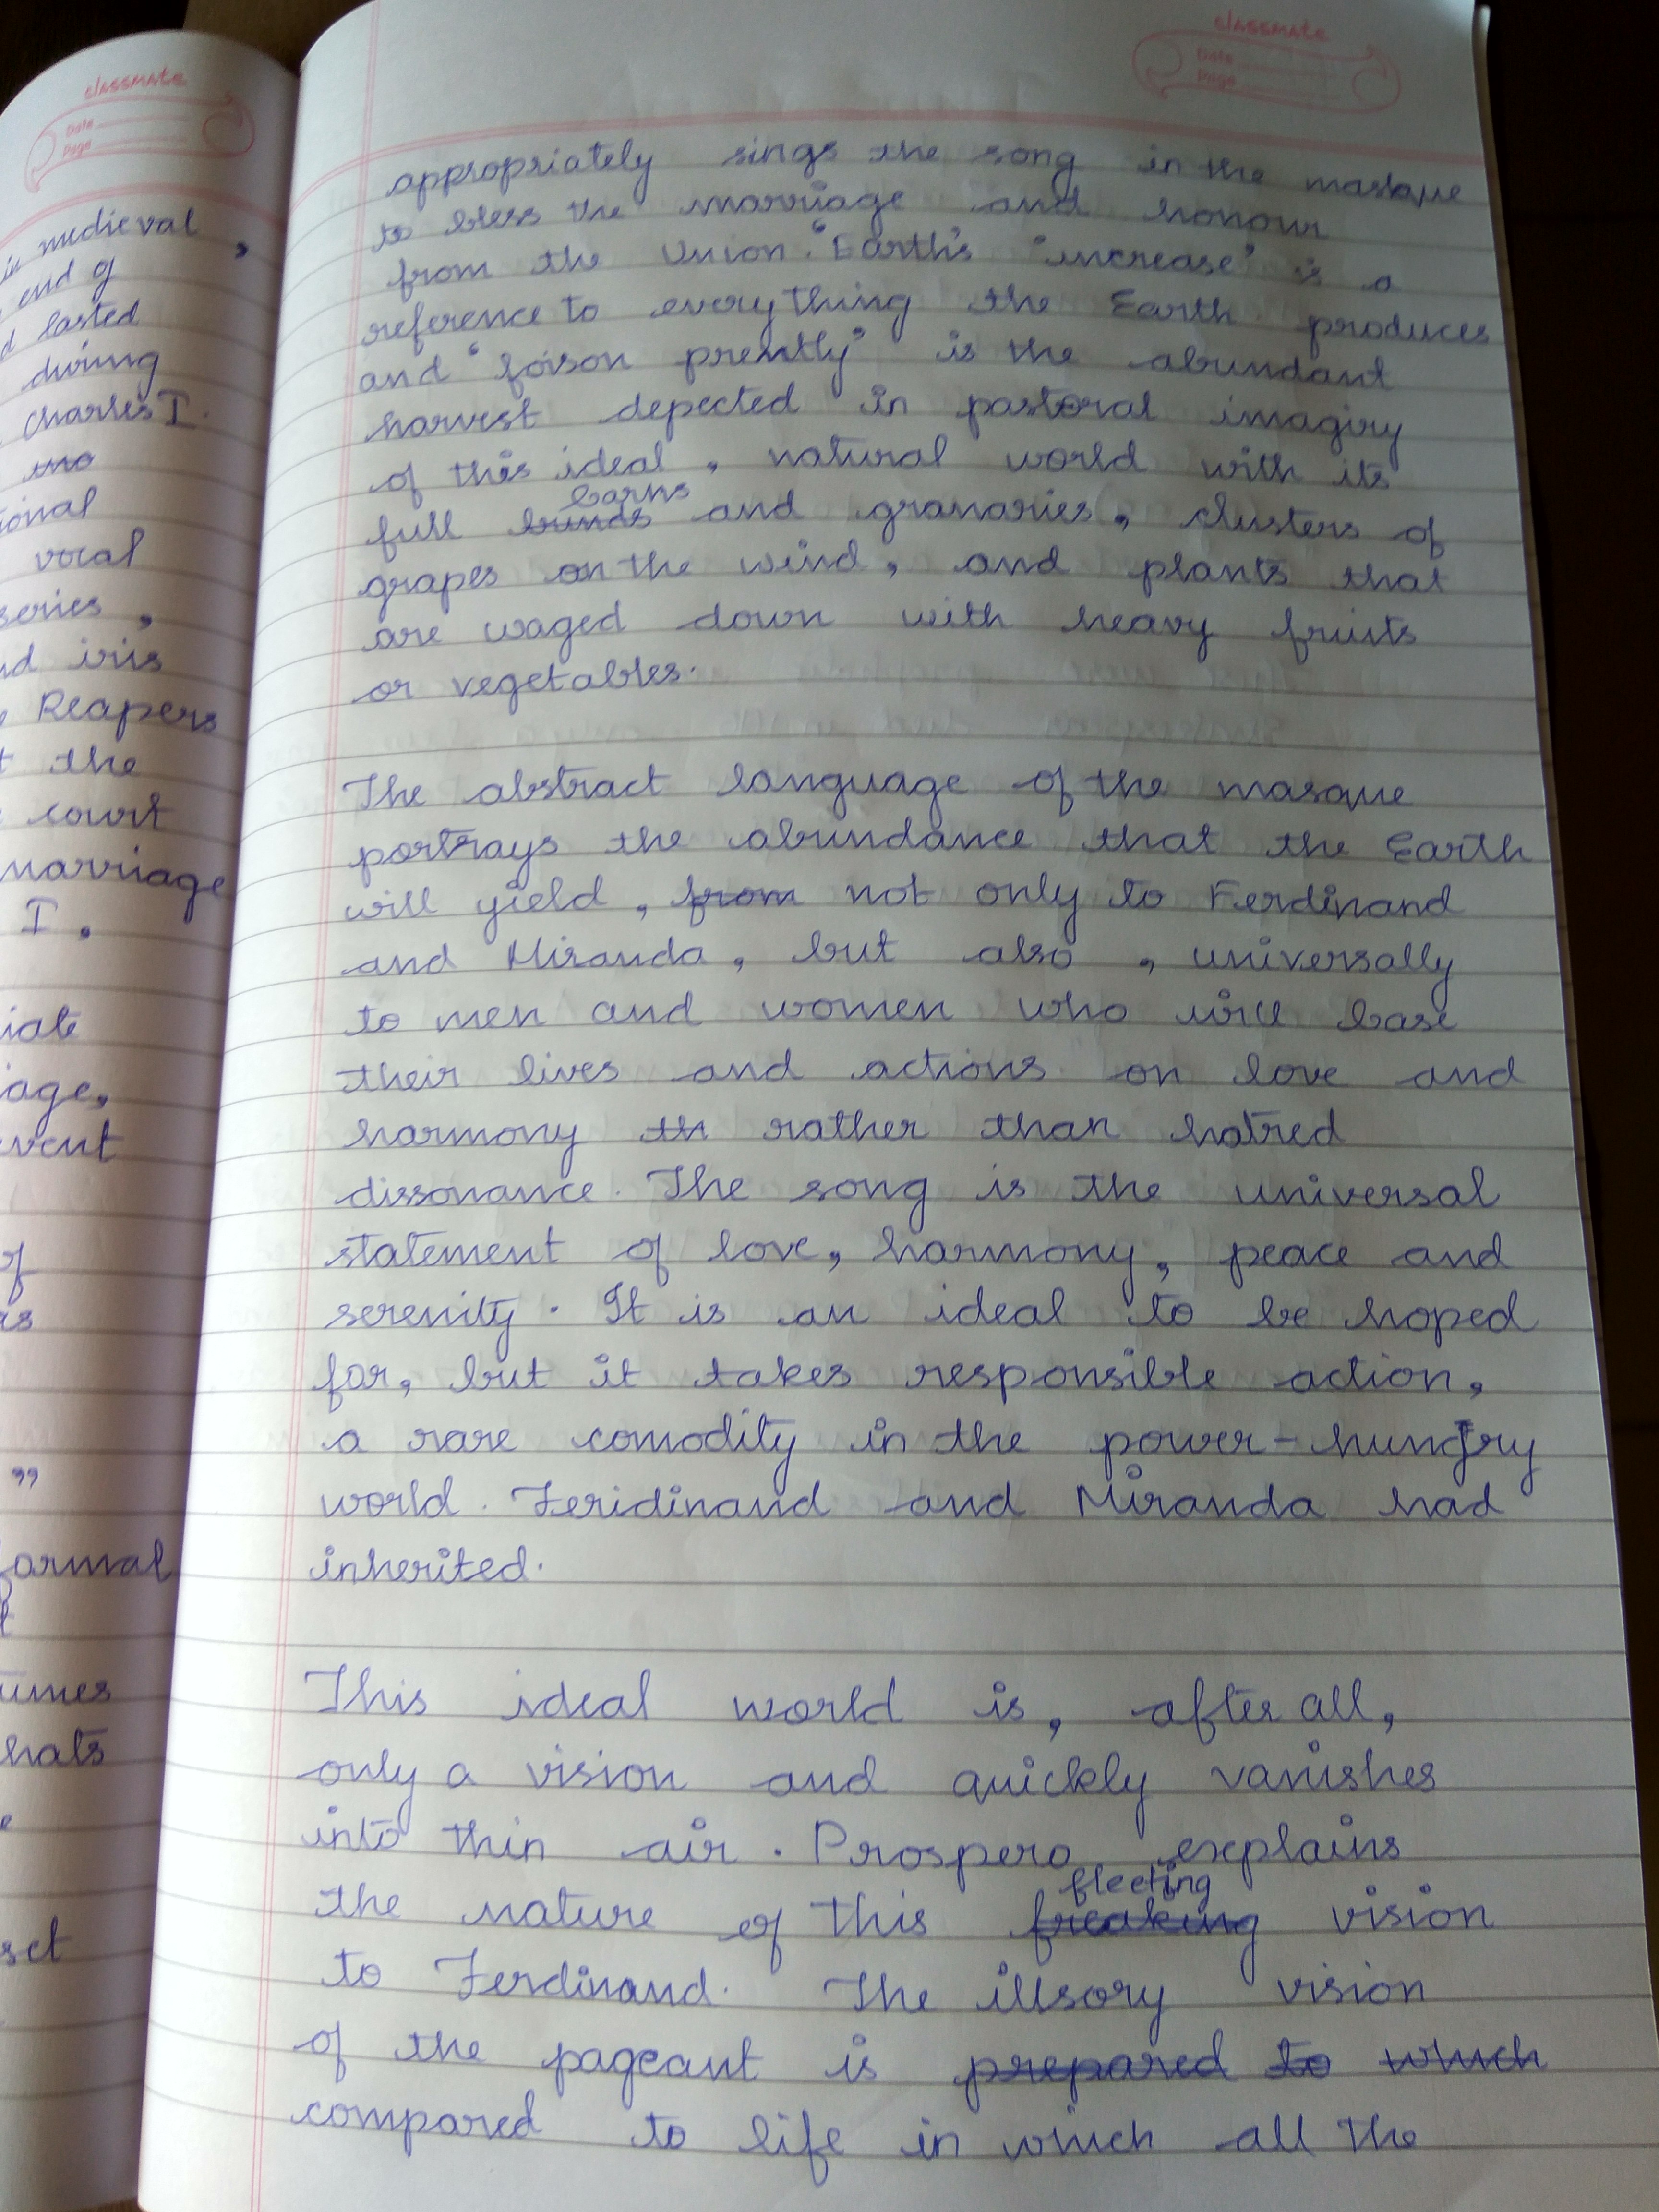 classmate
Date
Page
in medieval
,
end of
lasted
during
Charles I.
voral
series,
iris
Reapers
the
court
marriage
I,
age,
of
as
"
formal
hats
set
classmate
Date
Page
appropriately sings the song in the masque
to bless the marriage and honour
from the Union. "Earth's "increase" is a
reference to everything the Earth produces
and "foison prently" is the abundant
harvest depected in pastoral imagiry
of this ideal, natural world with its
barns
full and granaries, clusters of
grapes on the wind, and plants that
are waged down with heavy fruits
or vegetables.
The abstract language of the masque
portrays the abundance that the Earth
will yield, from not only to Ferdinand
and Miranda, but also, universally
to men and women who will base
their lives and actions on love and
harmony th rather than hatred
dissonance. The song is the universal
statement of love, harmony, peace and
serenity. It is an ideal to be hoped
for, but it takes responsible action,
a rare comodity in the power-hungry
world. Feridinand and Miranda had
inherited.
This ideal world is, after all,
only a vision and quickly vanishes
into thin air. Prospero explains
fleeting
the nature of this freaking vision
to Ferdinand. The illsory vision
of the pageant is prepared to which
compared to life in which all the